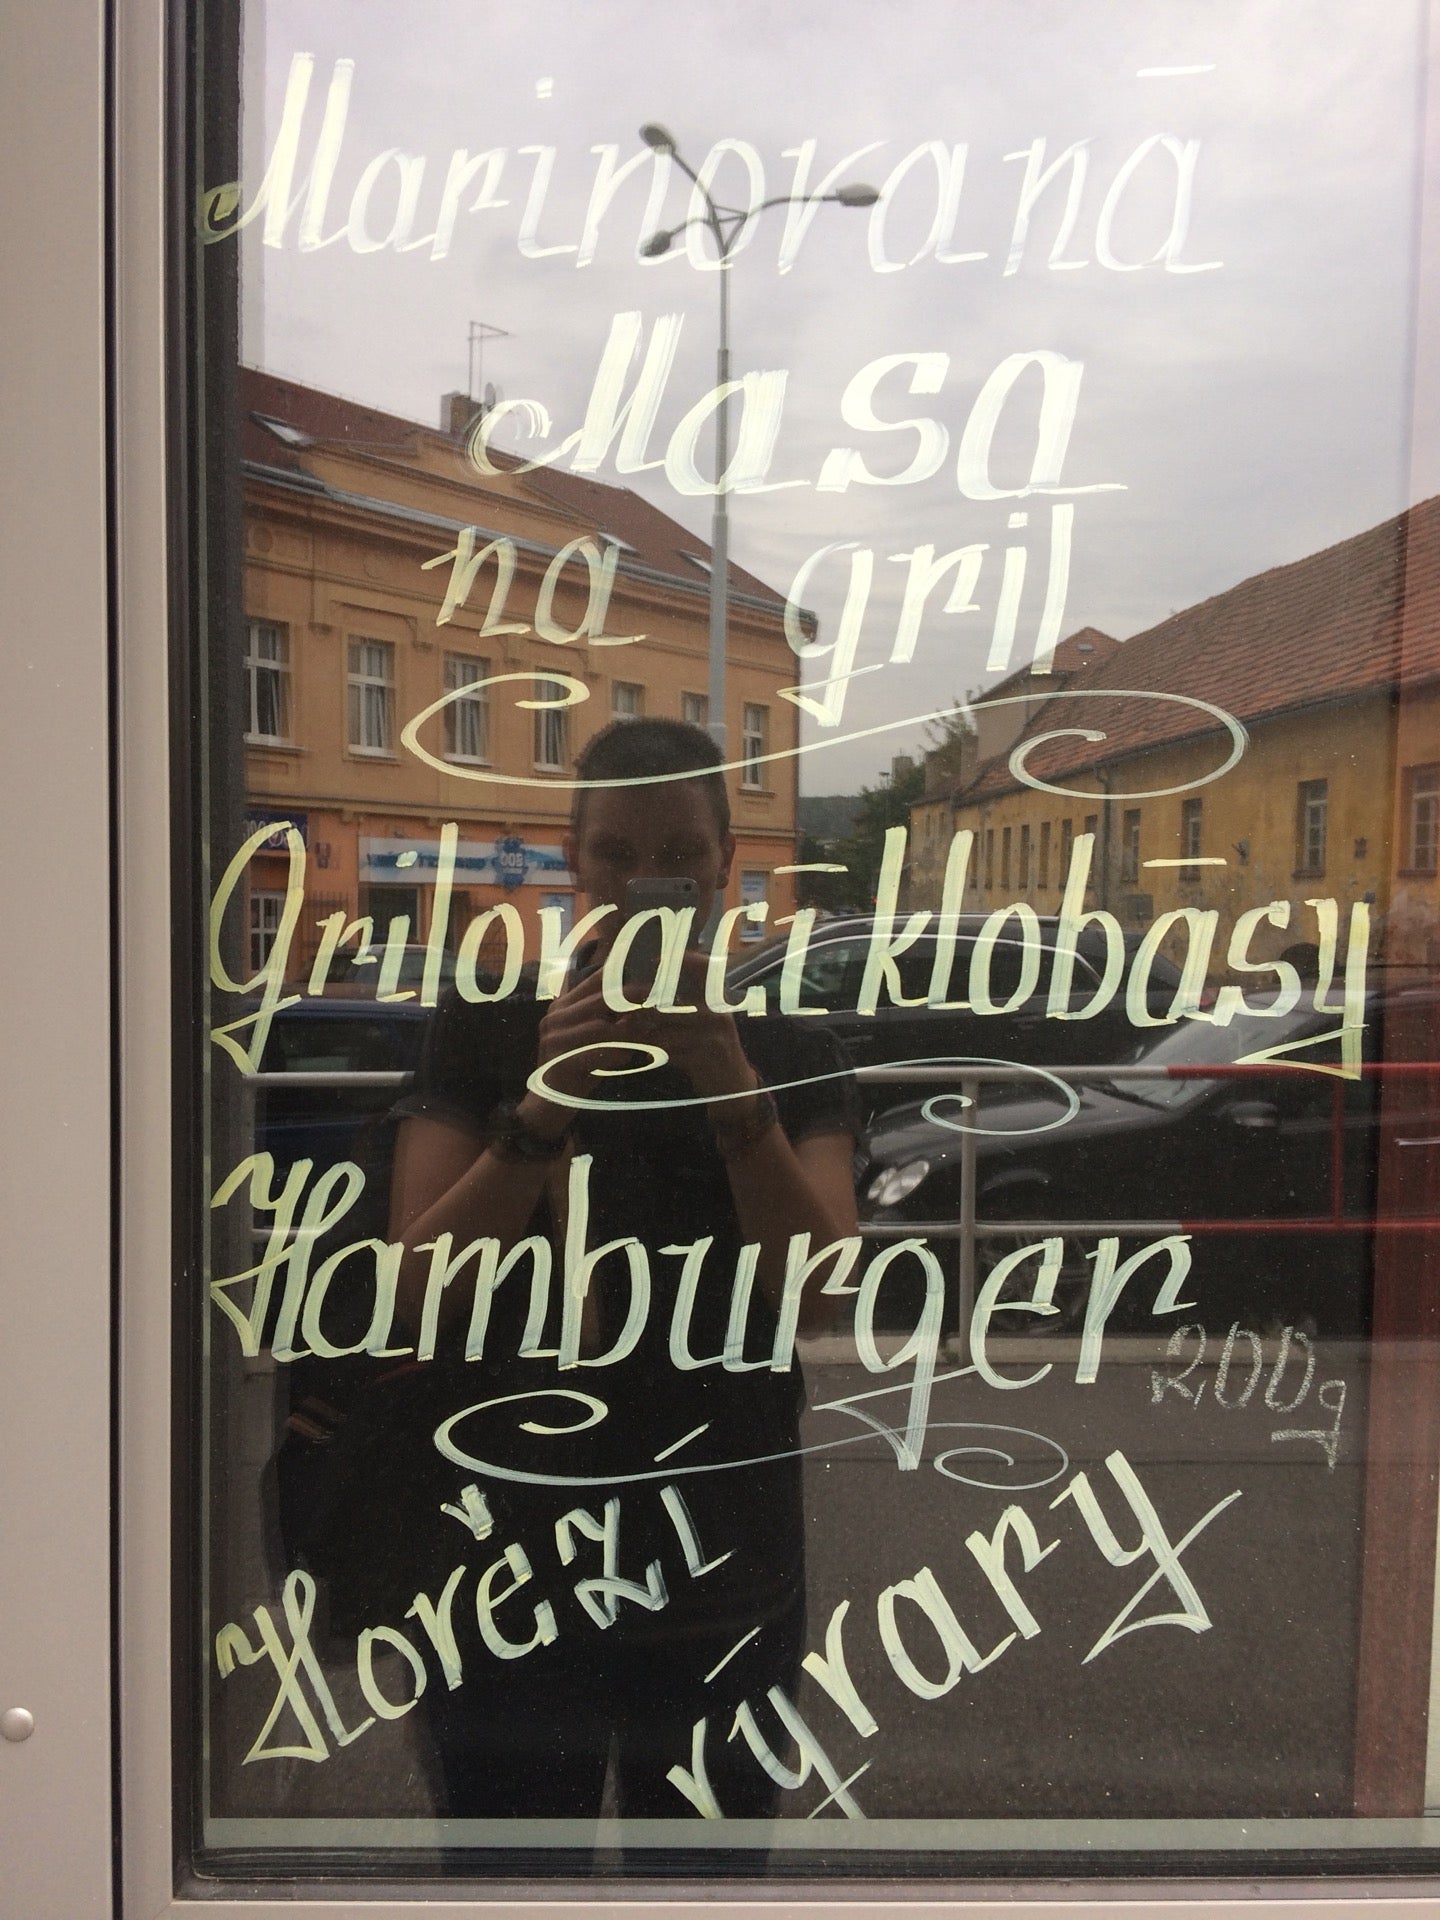 Marinovaná
Masa
na gril
Grilovací klobásy
Hamburger
200g
Hovězí
výrary